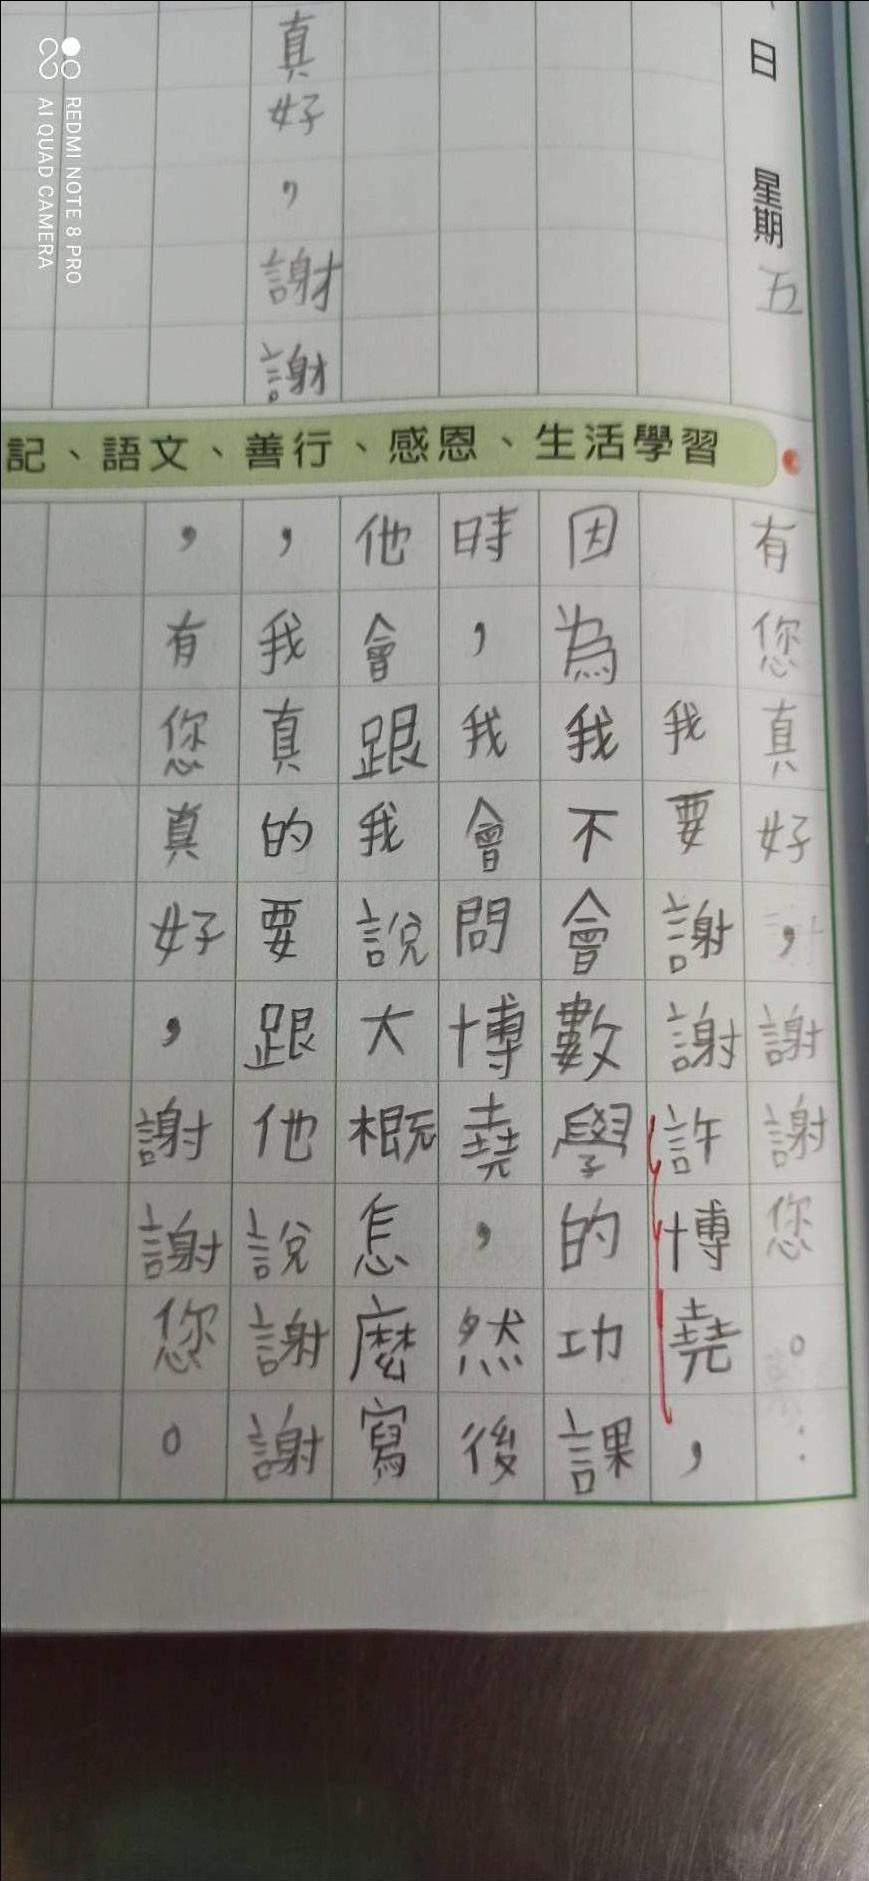 日　星期五
真好，謝謝
記、語文、善行、感恩、生活學習
有您真好，謝謝您。：
我要謝謝許博堯，
因為我不會數學的功課
時，我會問博堯，然後
他會跟我說大概怎麼寫
，我真的要跟他說謝謝
，有您真好，謝謝您。
REDMI NOTE 8 PRO
AI QUAD CAMERA